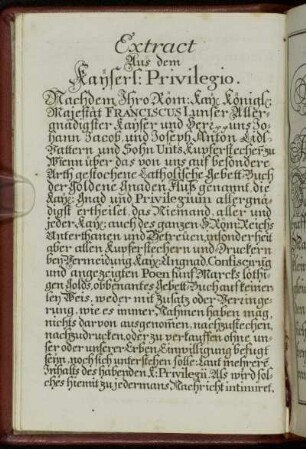 Extract
Aus dem
Kaÿserl: Privilegio.
Nachdem Ihro Röm: Kaÿ: Königl:
Majestät FRANCISCUS I unser Aller-
gnädigster Kaÿser und Herr uns Jo-
hann Jacob, und Joseph Anton Lidl,
Vattern und Sohn Univ. Kupferstecher, zu
Wienn über das von uns auf besondere
Arth gestochene Catholische Gebett-Buch
der Goldene Gnaden Fluß genannt die
Kaÿ: Gnad und Privilegium allergnä-
digst ertheilet, das Niemand, aller und
jeder Kaÿ: auch des ganzen H: Röm: Reichs
Unterthanen und Getreüen, insonderheit
aber allen Kupferstechern und Druckern
beÿ Vermeidung Kaÿ: Ungnad, Confiscirung
und angezeigten Poen fünf Marcks löthi-
gen Golds, obbenantes Gebett-Buch auf keiner-
leÿ Weis, weder mit Zusatz oder Verringe-
rung, wie es immer Nahmen haben mag,
nichts darvon ausgenomen, nachzustechen,
nachzudrucken, oder zu verkauffen ohne un-
ser oder unserer Erben Einwilligung befugt
seÿn, noch sich unterstehen solle: Laut mehrern
Inhalts des habenden K: Privilegii. Als wird sol-
ches hiemit zu jedermans Nachricht intimiret.